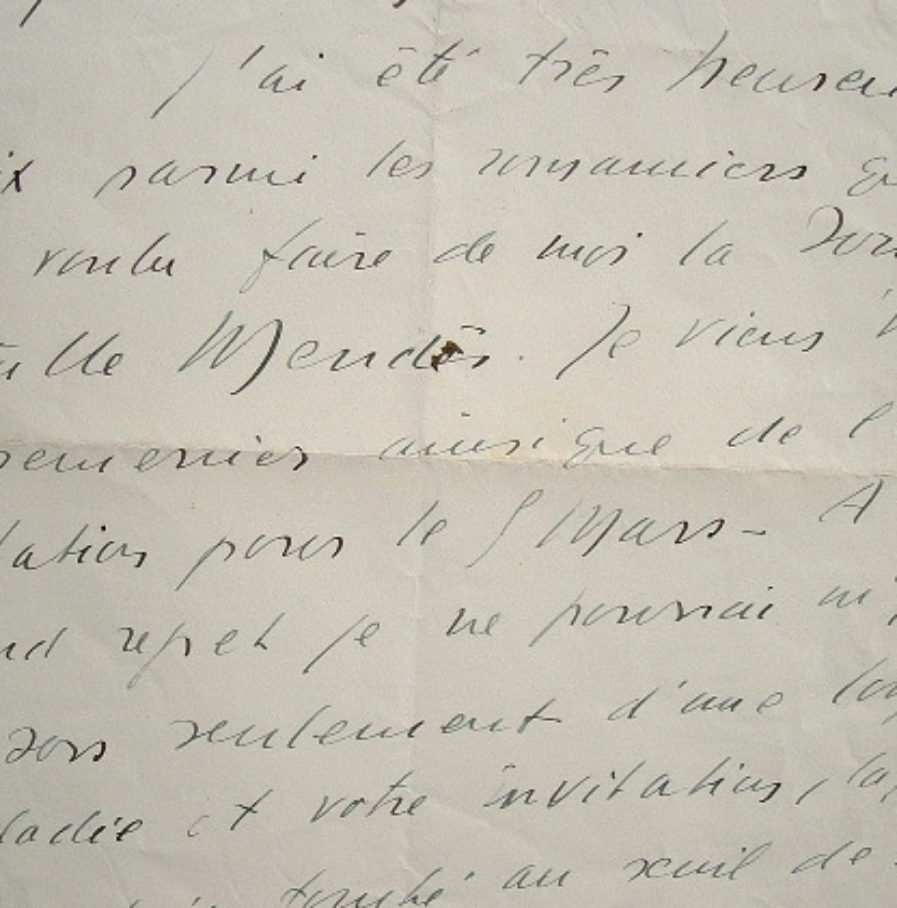 J'ai été très heureu
ix parmi les romanciers qu
voulu faire de moi la
ulle Mendès. Je viens
remercier ainsi que de l
tation pour le 5 Mars - A
nd regret je ne pourrai m'
sors seulement d'une lon
ladie et votre invitation, la
tombé au seuil de